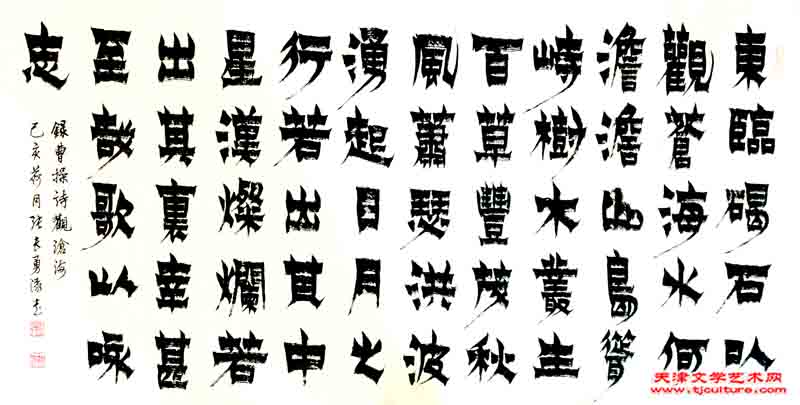 東臨碣石以
觀蒼海水何
澹澹山島聳
峙樹木叢生
百草豐茂秋
風蕭瑟洪波
湧起日月之
行若出其中
星漢燦爛若
出其裏幸甚
至哉歌以詠
志
錄曹操詩觀滄海
己亥荷月张長勇
天津文学艺术网
www.tjculture.com